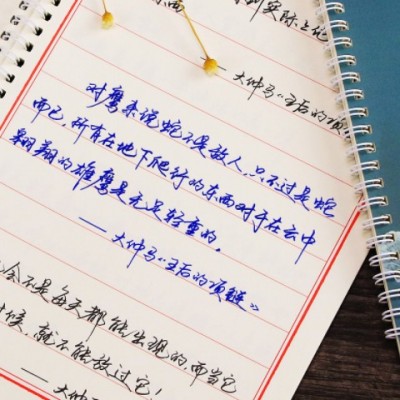 东西
实际上他
——大仲马《王后的项
对鹰来说蛇不是敌人,只不过是蛇
而已,所有在地下爬行的东西对于在云中
翱翔的雄鹰是无足轻重的。
——大仲马《王后的项链》
会不是每天都能出现的,而当它
时候,就不能放过它!
——大仲马